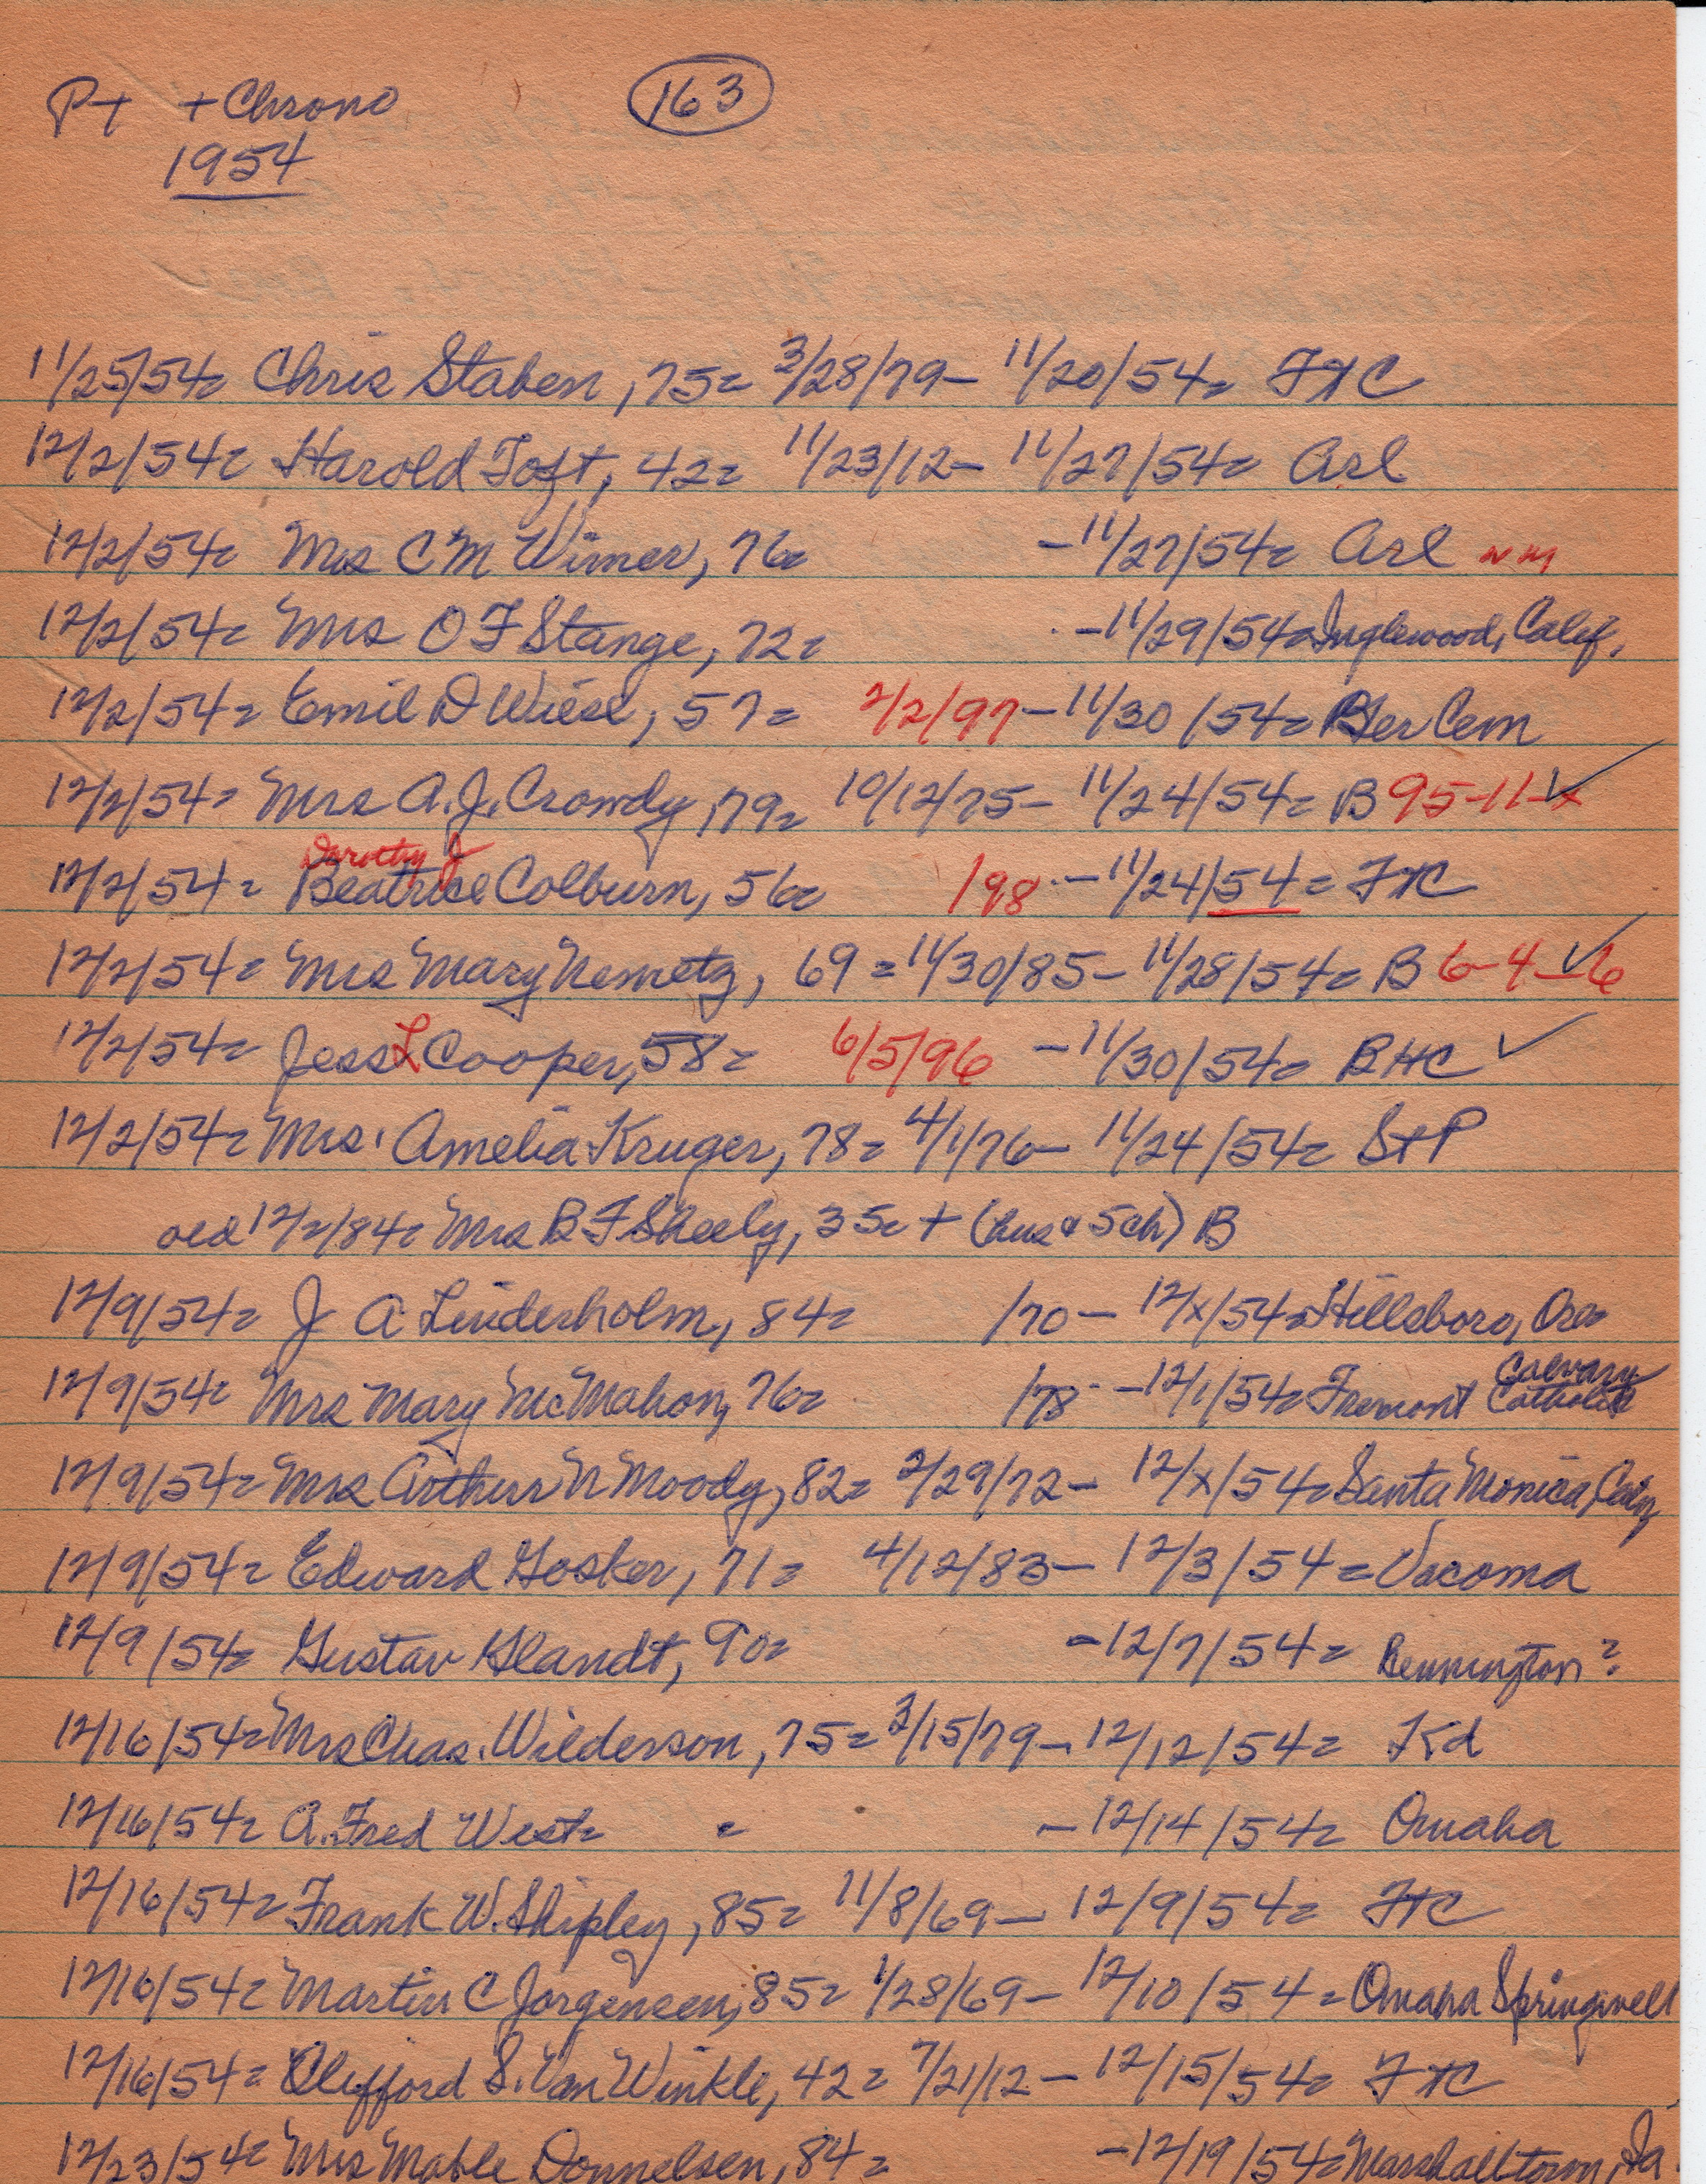 Pt + Chrono (163)
1954
11/25/54= Chris Staben, 75= 3/28/79- 11/20/54= FHC
12/2/54= Harold Toft, 42= 11/23/12- 11/27/54= Arl
12/2/54= Mrs C M Wimer, 76= -11/27/54= Arl NM
12/2/54= Mrs O F Stange, 72= -11/29/54= Inglewood, Calif.
12/2/54= Emil D Wiese, 57= 2/2/97-11/30/54= Ber Cem
12/2/54= Mrs A.J. Crowdy, 79= 10/12/75- 11/24/54= B 95-11-x ✓
Dorothy J
12/2/54= Beatrice Colburn, 56= /98 -11/24/54= FHC
12/2/54= Mrs Mary Nemetz, 69=11/30/85- 11/28/54= B 6-4-6 ✓
12/2/54= Jess L Cooper, 58= 6/5/96 -11/30/54= BHC ✓
12/2/54= Mrs. Amelia Kruger, 78= 4/1/76- 11/24/54= StP
old 12/2/84= Mrs B F Sheely, 35= + (hus & 5ch) B
12/9/54= J A Linderholm, 84= /70- 12/x/54= Hillsboro, Ore
Calvary
12/9/54= Mrs Mary McMahon, 76= /78 -12/1/54= Fremont Catholic
12/9/54= Mrs Arthur N Moody, 82= 2/29/72- 12/x/54= Santa Monica, Calif
12/9/54= Edward Gosker, 71= 4/12/83- 12/3/54= Vacoma
12/9/54= Gustav Glandt, 90= -12/7/54= Bennington?
12/16/54= Mrs Chas. Wilderson, 75= 3/15/79- 12/12/54= Kd
12/16/54= A. Fred West= = -12/14/54= Omaha
12/16/54= Frank W. Shipley, 85= 11/8/69- 12/9/54= FHC
12/16/54= Martin C Jorgensen, 85= 1/28/69- 12/10/54= Omaha Springwell
12/16/54= Clifford S. Van Winkle, 42= 7/21/12- 12/15/54= FHC
12/23/54= Mrs Mable Donnelsen, 84= -12/19/54= Marshalltown, Ia.